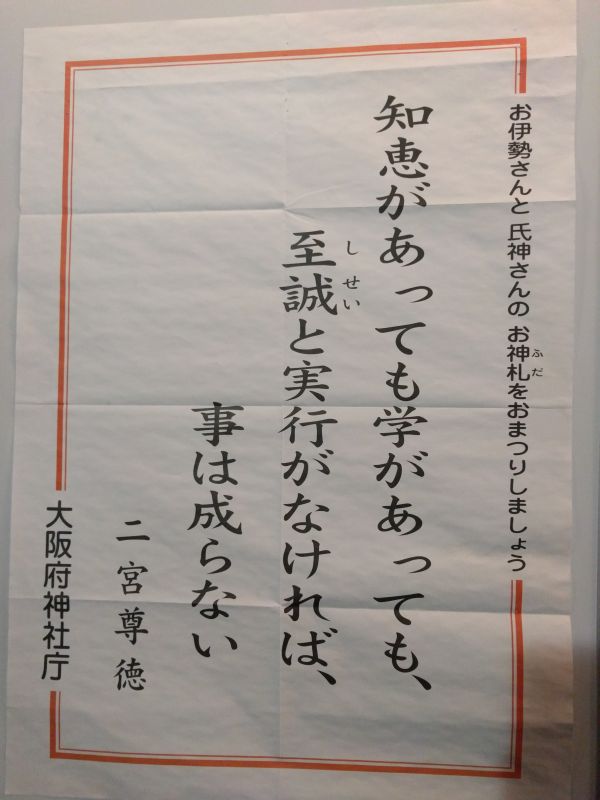 お伊勢さんと氏神さんの お神札をおまつりしましょう
ふだ
知恵があっても学があっても、
しせい
至誠と実行がなければ、
事は成らない
二宮尊徳
大阪府神社庁